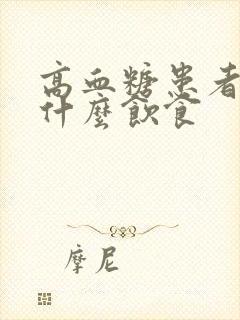 高血糖患者
什麼飲食
摩尼